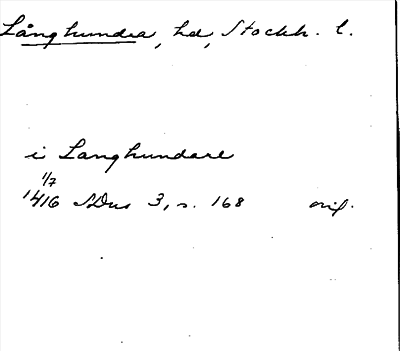 Långhundra, hd, Stockh. l.
i Langhundare
1/7
1416 SDns 3, s. 168 orig.